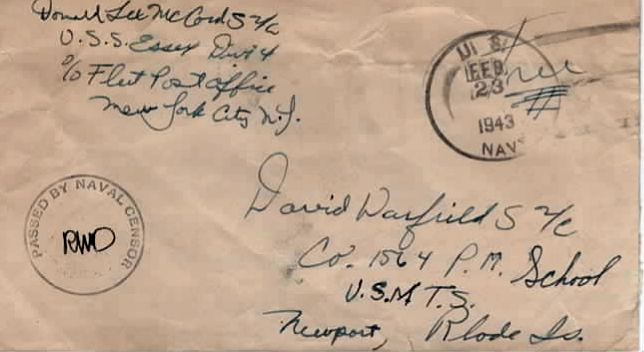 Donald Lee McCord S 2/c
U.S.S. Essex Div 4
c/o Fleet Post Office
New York City N.Y.
U. S.
FEB
23
1943
NAVY
Free
PASSED BY NAVAL CENSOR
RWO
David Warfield S 2/c
Co. 1564 P.M. School
U.S.M.T.S.
Newport, Rhode Is.